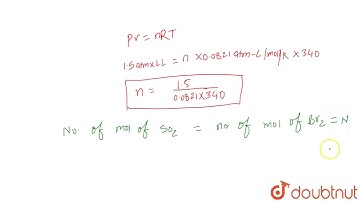 PV = nRT
1.5 atm x 1L = n x 0.0821 atm-L/mol/K x 340
n = 1.5 / 0.0821x340
No. of mol of SO2 = no of mol of Br2 = N
doubtnut